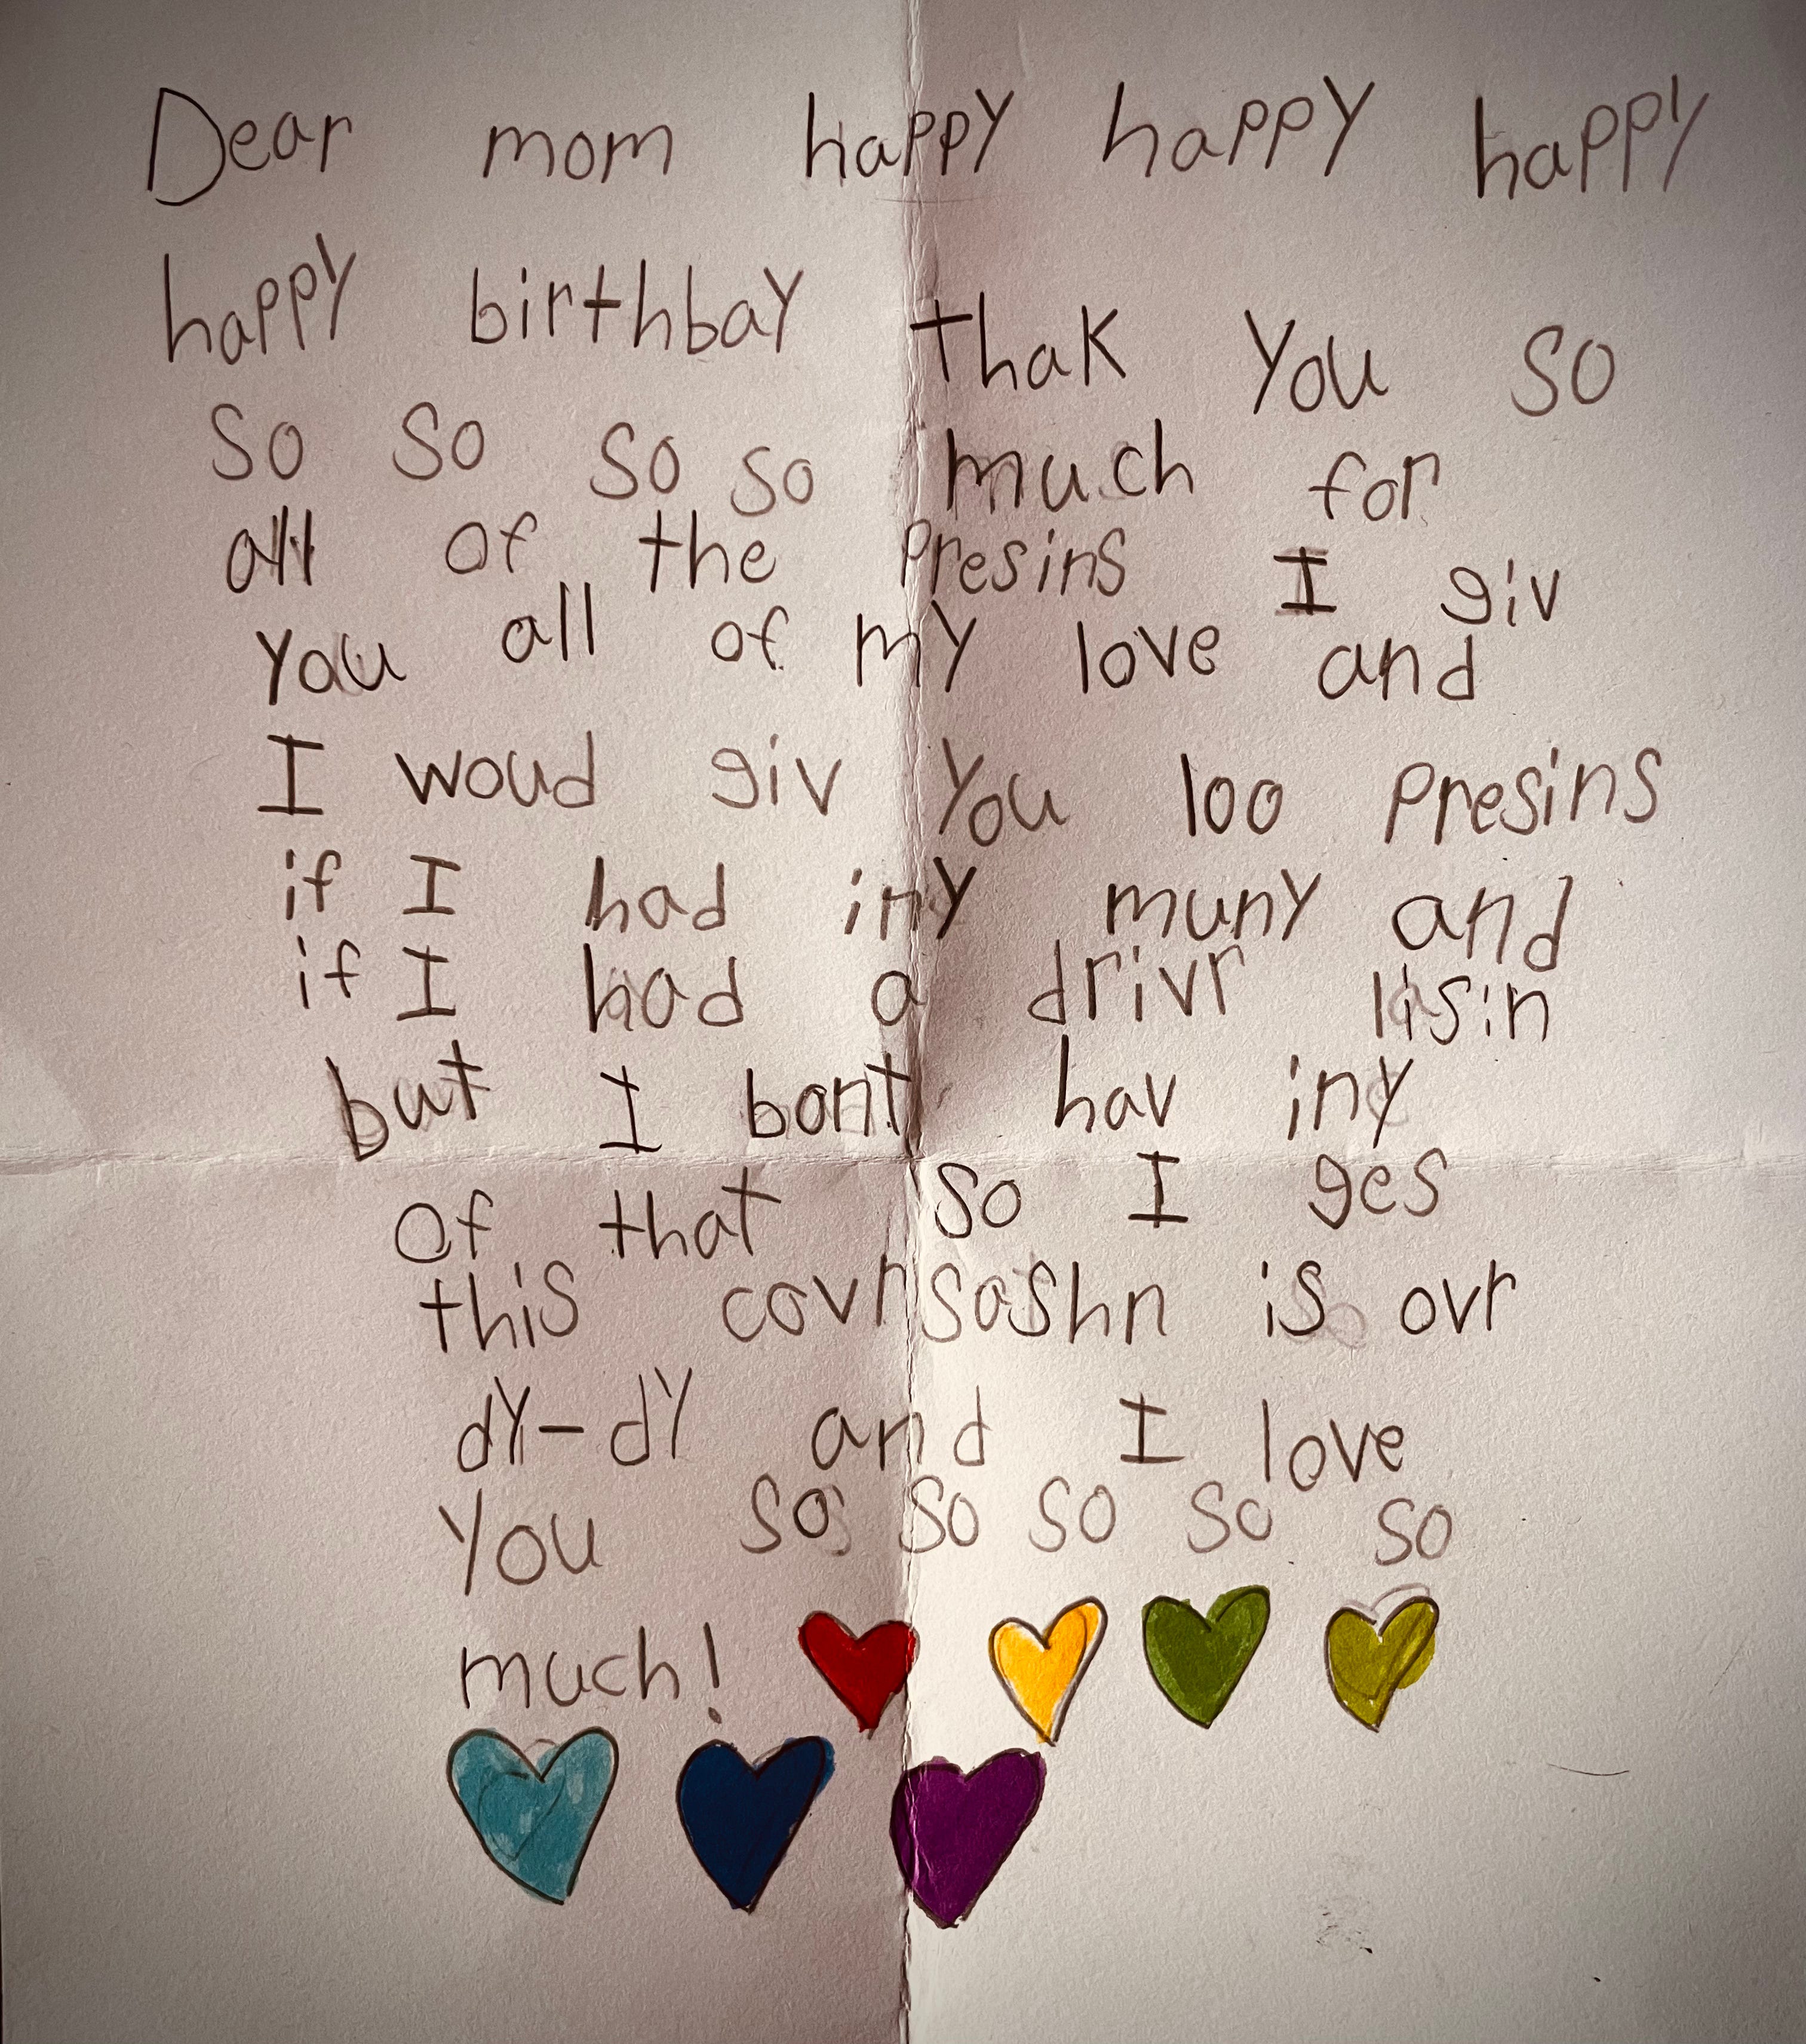 Dear mom happy happy happy
happy birthbay thak you so
so so so so much for
all of the presins I giv
you all of my love and
I woud giv you 100 presins
if I had iny muny and
if I had a drivr lisin
but I bont hav iny
of that so I ges
this covrsashn is ovr
dy-dy and I love
you so so so so so
much!